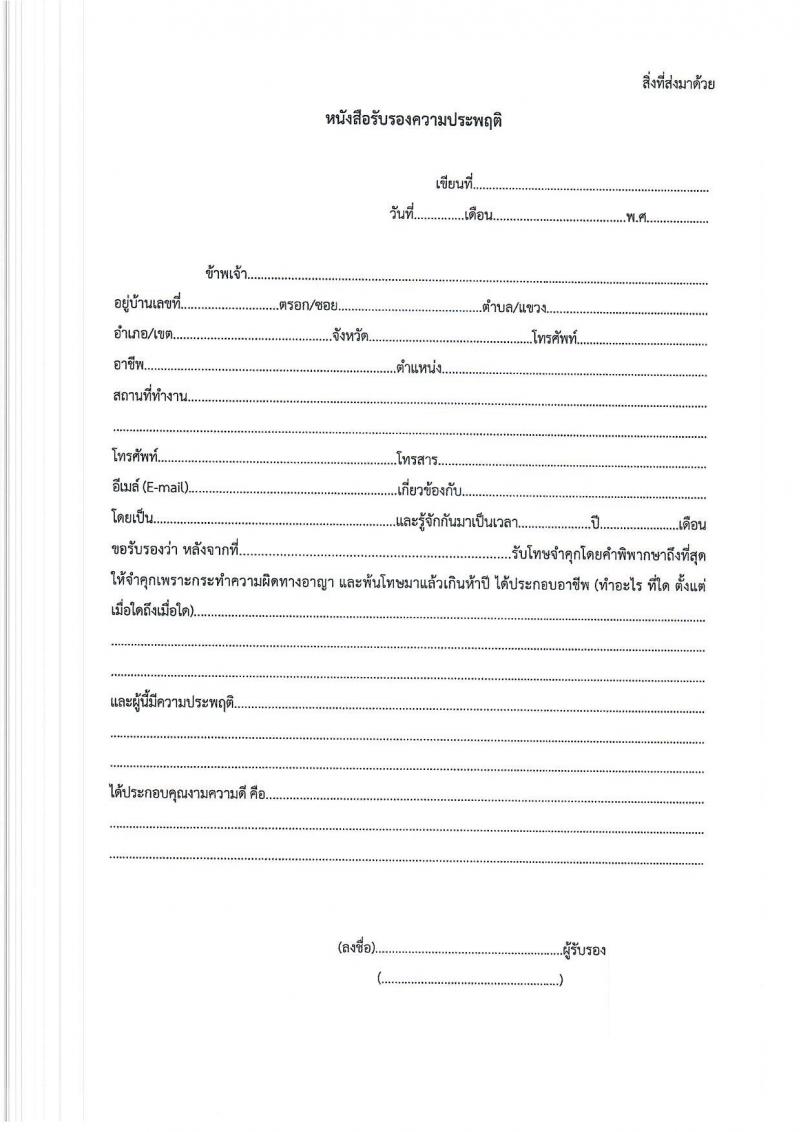 สิ่งที่ส่งมาด้วย
หนังสือรับรองความประพฤติ
เขียนที่..............................................................
วันที่...............เดือน........................................พ.ศ...................
ข้าพเจ้า........................................................................................................................
อยู่บ้านเลขที่..........................ตรอก/ซอย......................................ตำบล/แขวง..........................................
อำเภอ/เขต..........................................จังหวัด...........................................โทรศัพท์..................................
อาชีพ..................................................................ตำแหน่ง......................................................................
สถานที่ทำงาน........................................................................................................................................
............................................................................................................................................................
โทรศัพท์...............................................................โทรสาร.......................................................................
อีเมล์ (E-mail).......................................................เกี่ยวข้องกับ.................................................................
โดยเป็น................................................................และรู้จักกันมาเป็นเวลา...................ปี.....................เดือน
ขอรับรองว่า หลังจากที่........................................................................รับโทษจำคุกโดยคำพิพากษาถึงที่สุด
ให้จำคุกเพราะกระทำความผิดทางอาญา และพ้นโทษมาแล้วเกินห้าปี ได้ประกอบอาชีพ (ทำอะไร ที่ใด ตั้งแต่
เมื่อใดถึงเมื่อใด)......................................................................................................................................
............................................................................................................................................................
............................................................................................................................................................
และผู้นี้มีความประพฤติ............................................................................................................................
............................................................................................................................................................
............................................................................................................................................................
ได้ประกอบคุณงามความดี คือ...................................................................................................................
............................................................................................................................................................
............................................................................................................................................................
(ลงชื่อ)........................................................ผู้รับรอง
(.....................................................)